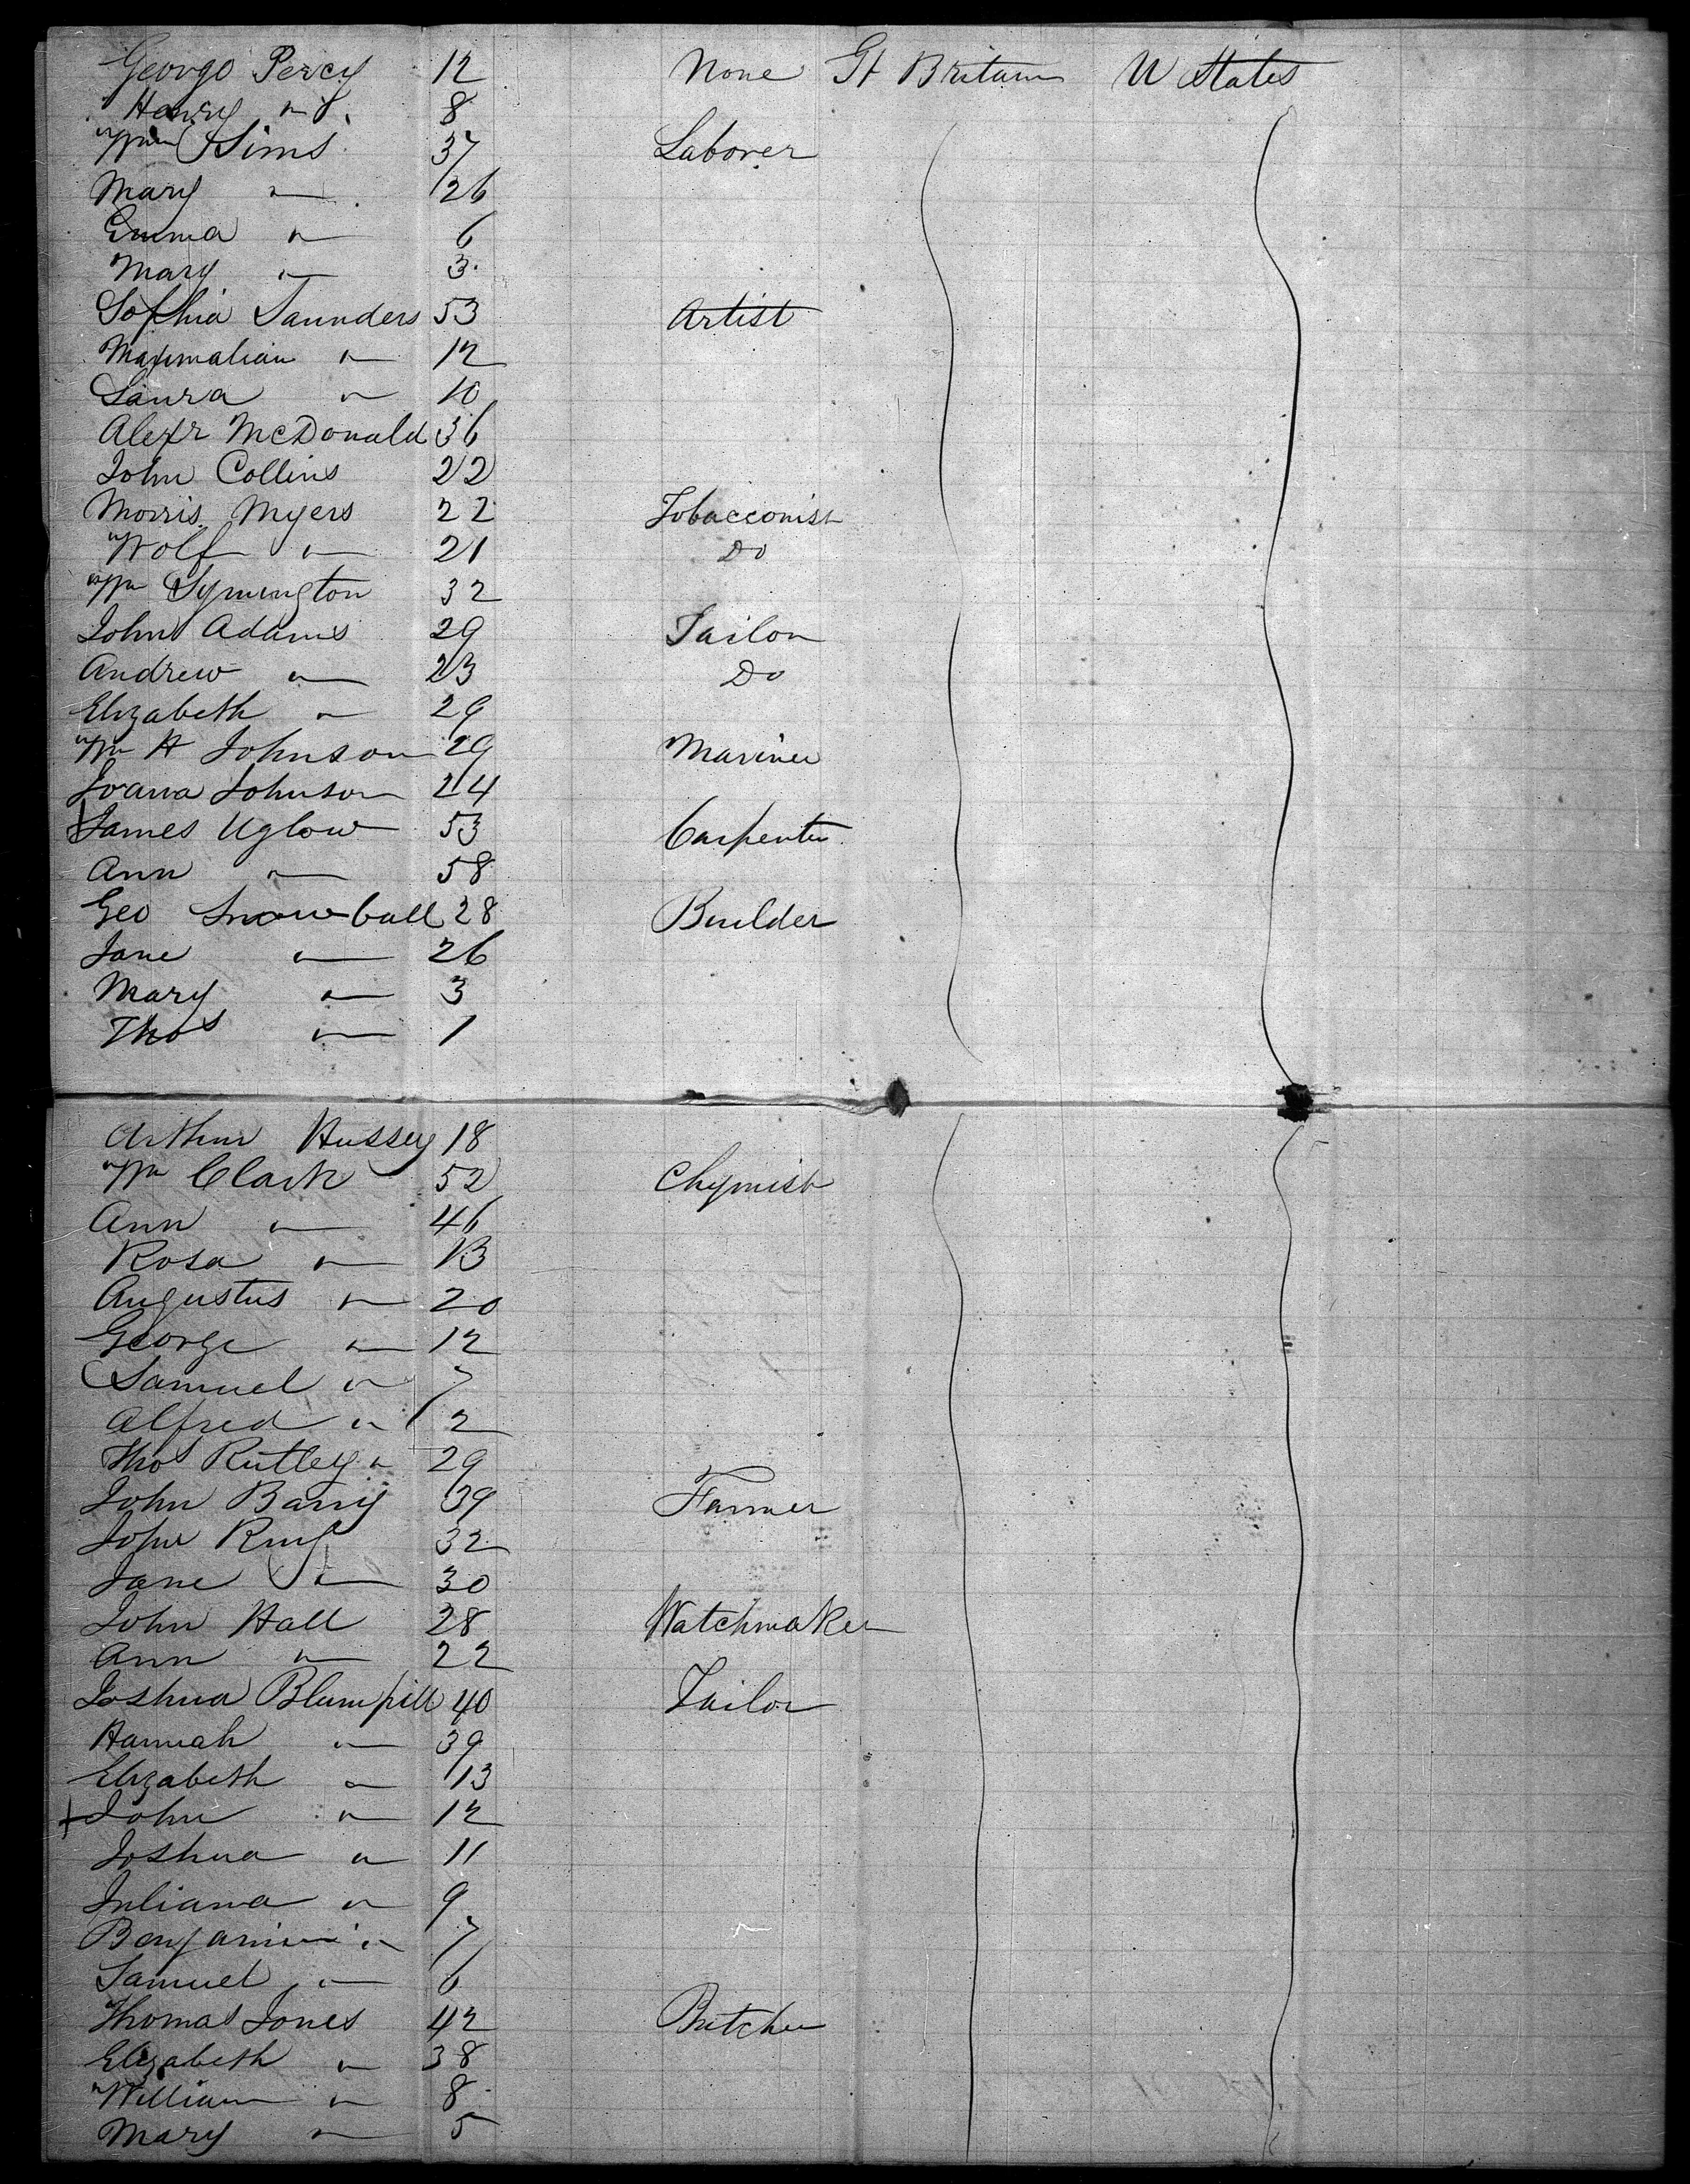 George Percy 12 None Gt Britain U States
Henry " 8
Wm Sims 37 Laborer
Mary " 26
Emma " 6
Mary " 3
Sophia Saunders 53 Artist
Maxmalian " 12
Laura " 10
Alexr McDonald 36
John Collins 22
Morris Myers 22 Tobacconist
Wolf " 21 Do
Wm Symington 32
John Adams 29 Tailor
Andrew " 23 Do
Elizabeth " 29
Wm H Johnson 29 Mariner
Joana Johnson 24
James Uglow 53 Carpenter
Ann " 58
Geo Snowball 28 Builder
Jane " 26
Mary " 3
Thos " 1
Arthur Hussey 18
Wm Clark 52 Chymist
Ann " 46
Rosa " 13
Augustus " 20
George " 12
Samuel " 7
Alfred " 2
Thos Rutley " 29
John Barry 39 Farmer
John Ring 32
Jane " 30
John Hall 28 Watchmaker
Ann " 22
Joshua Blumpill 40 Tailor
Hannah " 39
Elizabeth " 13
+ John " 12
Joshua " 11
Juliana " 9
Benjamin " 7
Samuel " 6
Thomas Jones 42 Butcher
Elizabeth " 38
William " 8
Mary " 5